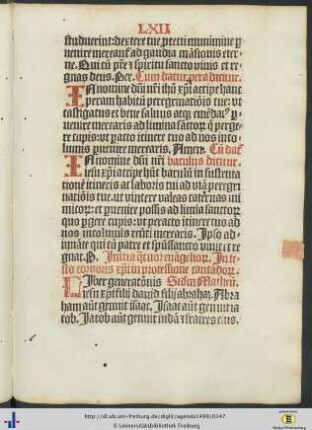 LXII
studuerint: dextere tue ptecti munimine p
uenire mereant ad gaudia mãsionis eter-
ne. Qui cũ prẽ z spiritu sancto viuis et re-
gnas deus. Per. Cum datur pera dicitur.
In nomine dñi nři ihũ xpi accipe hanc
peram habitũ peregrinatiõis tue: ut
castigatus et bene saluus atqz emẽdatꝰ p
uenire merearis ad limina sanctorum q̃ perge-
re cupis: ut pacto itinere tuo ad nos inco-
lumis puenire merearis. Amen. Cũ daẽ
In nomine dñi nři baculus dicitur.
iesu xpi accipe hũc baculũ in sustenta-
tionẽ itineris ac laboris tui ad viã peregri
natiõis tue: ut vincere valeas cateruas ini
micorum: et puenire possis ad limia sanctorum
quo pgere cupis: ut peracto itinere tuo ad
nos incolumis reuẽti merearis. Ipso ad-
iuuãte qui cũ patre et spũssancto viuit et re
gnat. P. Initia q̃tuor euãgeliorum. In fe-
sto corporis xpi in processione cantãdorum.
Liber generatiõnis Scdm Matheũ.
iesu xpi filij dauid filij abrahaz Abra
ham aũt genuit isaac. Isaac aũt genuit ia
cob. Jacob aũt genuit iudã z fratres eius.
http://dl.ub.uni-freiburg.de/diglit/agenda1498/0147
© Universitätsbibliothek Freiburg